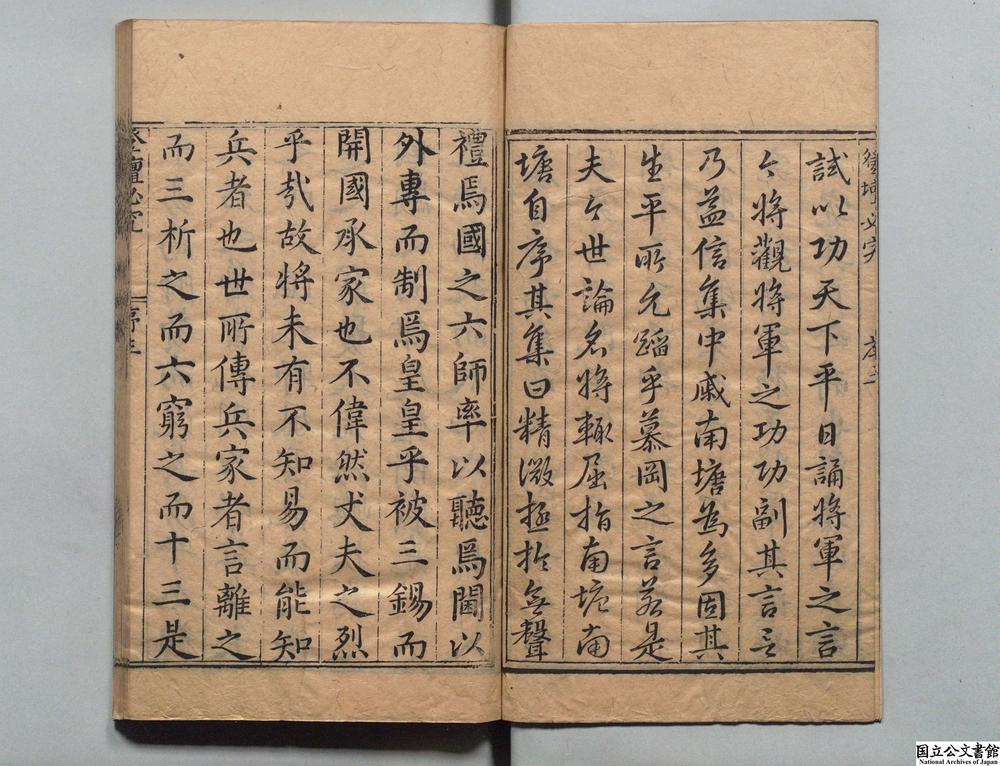 登壇必究
試以功天下平日誦將軍之言
今將觀將軍之功功副其言言
乃益信集中戚南塘為多固其
生平所允蹈乎慕岡之言若是
夫今世論名將輙屈指南塘南
塘自序其集曰精微極於無聲
禮焉國之六師率以聽焉閫以
外專而制焉皇皇乎被三錫而
開國承家也不偉然丈夫之烈
乎哉故將未有不知易而能知
兵者也世所傳兵家者言離之
而三析之而六窮之而十三是
登壇必究 序
国立公文書館
National Archives of Japan